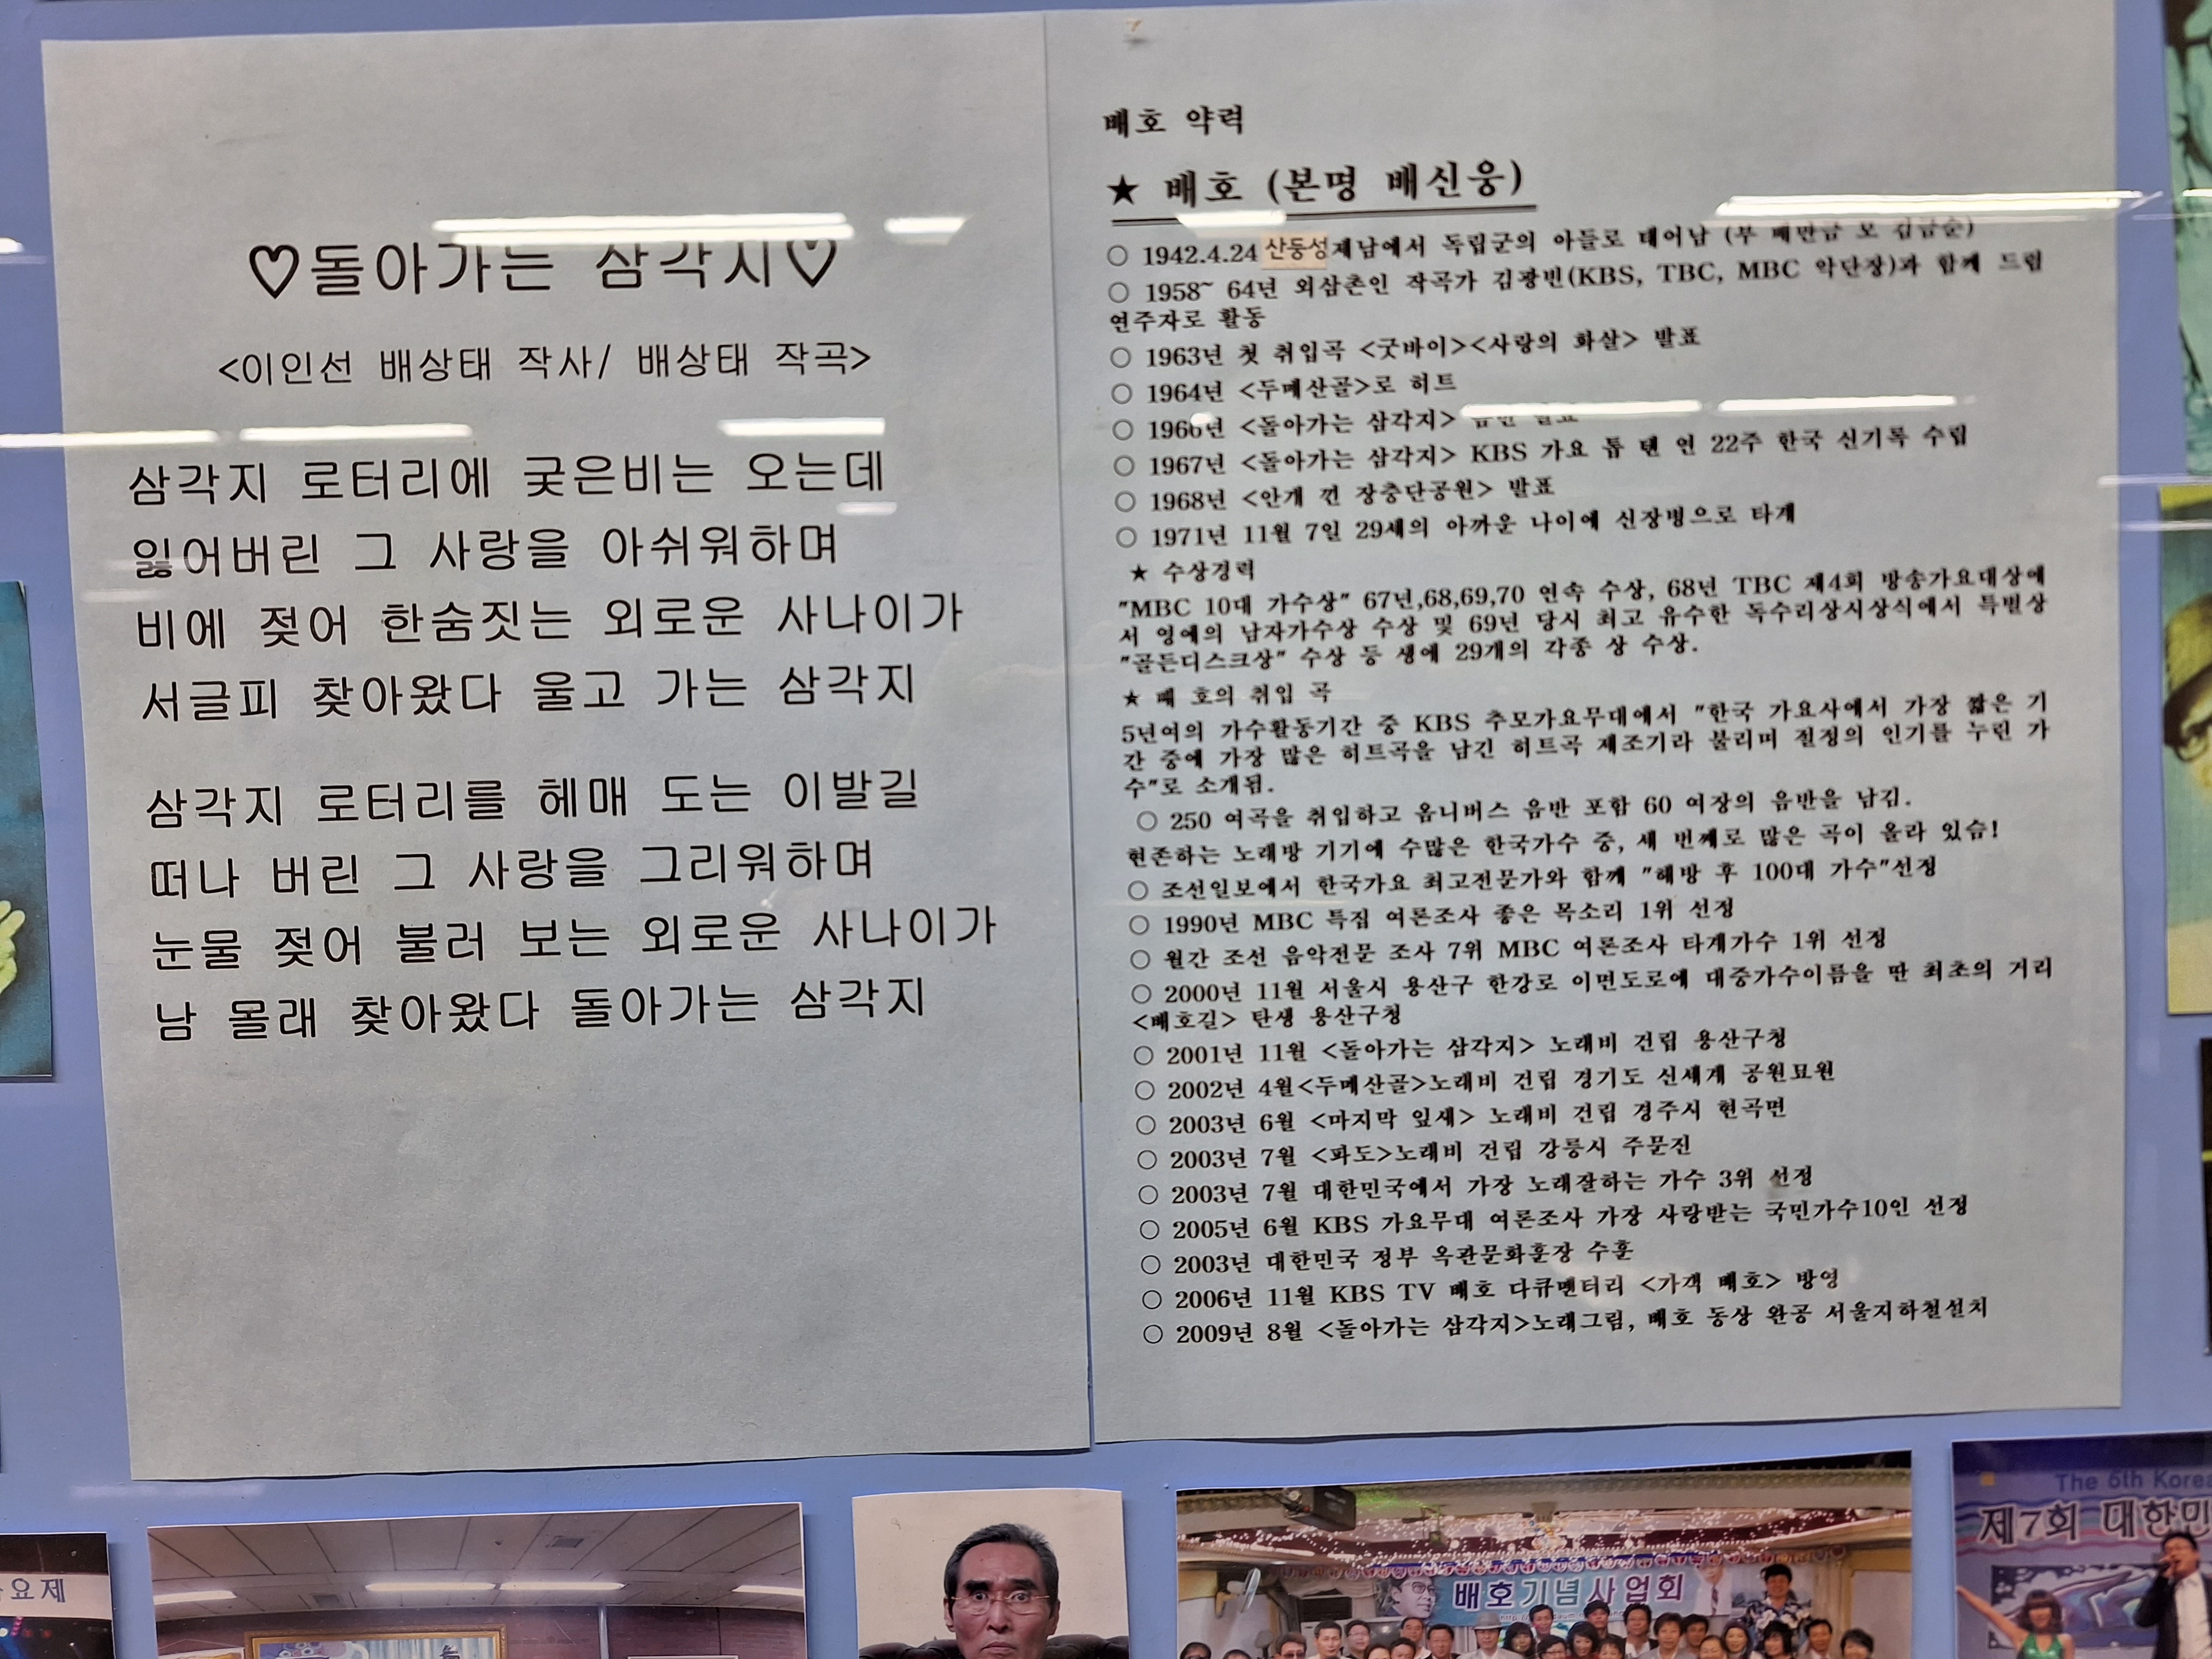 ♡돌아가는 삼각지♡
<이인선 배상태 작사/ 배상태 작곡>
삼각지 로터리에 궂은비는 오는데
잃어버린 그 사랑을 아쉬워하며
비에 젖어 한숨짓는 외로운 사나이가
서글피 찾아왔다 울고 가는 삼각지
삼각지 로터리를 헤매 도는 이발길
떠나 버린 그 사랑을 그리워하며
눈물 젖어 불러 보는 외로운 사나이가
남 몰래 찾아왔다 돌아가는 삼각지
배호 약력
★ 배호 (본명 배신웅)
○ 1942.4.24 산둥성제남에서 독립군의 아들로 태어남 (부 배만금 모 김금순)
○ 1958~ 64년 외삼촌인 작곡가 김광빈(KBS, TBC, MBC 악단장)과 함께 드럼
연주자로 활동
○ 1963년 첫 취입곡 <굿바이><사랑의 화살> 발표
○ 1964년 <두메산골>로 히트
○ 1966년 <돌아가는 삼각지>
○ 1967년 <돌아가는 삼각지> KBS 가요 톱 텐 연 22주 한국 신기록 수립
○ 1968년 <안개 낀 장충단공원> 발표
○ 1971년 11월 7일 29세의 아까운 나이에 신장병으로 타계
★ 수상경력
"MBC 10대 가수상" 67년,68,69,70 연속 수상, 68년 TBC 제4회 방송가요대상에
서 영예의 남자가수상 수상 및 69년 당시 최고 유수한 독수리상시상식에서 특별상
"골든디스크상" 수상 등 생에 29개의 각종 상 수상.
★ 배 호의 취입 곡
5년여의 가수활동기간 중 KBS 추모가요무대에서 "한국 가요사에서 가장 짧은 기
간 중에 가장 많은 히트곡을 남긴 히트곡 제조기라 불리며 절정의 인기를 누린 가
수"로 소개됨.
○ 250 여곡을 취입하고 옴니버스 음반 포함 60 여장의 음반을 남김.
현존하는 노래방 기기에 수많은 한국가수 중, 세 번째로 많은 곡이 올라 있슴!
○ 조선일보에서 한국가요 최고전문가와 함께 "해방 후 100대 가수"선정
○ 1990년 MBC 특집 여론조사 좋은 목소리 1위 선정
○ 월간 조선 음악전문 조사 7위 MBC 여론조사 타계가수 1위 선정
○ 2000년 11월 서울시 용산구 한강로 이면도로에 대중가수이름을 딴 최초의 거리
<배호길> 탄생 용산구청
○ 2001년 11월 <돌아가는 삼각지> 노래비 건립 용산구청
○ 2002년 4월<두메산골>노래비 건립 경기도 신세계 공원묘원
○ 2003년 6월 <마지막 잎새> 노래비 건립 경주시 현곡면
○ 2003년 7월 <파도>노래비 건립 강릉시 주문진
○ 2003년 7월 대한민국에서 가장 노래잘하는 가수 3위 선정
○ 2005년 6월 KBS 가요무대 여론조사 가장 사랑받는 국민가수10인 선정
○ 2003년 대한민국 정부 옥관문화훈장 수훈
○ 2006년 11월 KBS TV 배호 다큐멘터리 <가객 배호> 방영
○ 2009년 8월 <돌아가는 삼각지>노래그림, 배호 동상 완공 서울지하철설치
요제
배호기념사업회
The 6th Kore
제7회 대한민